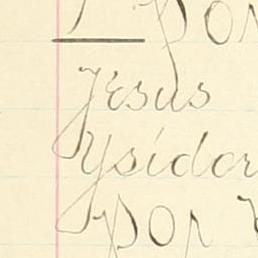 Por
Jesus
Ysidor
por